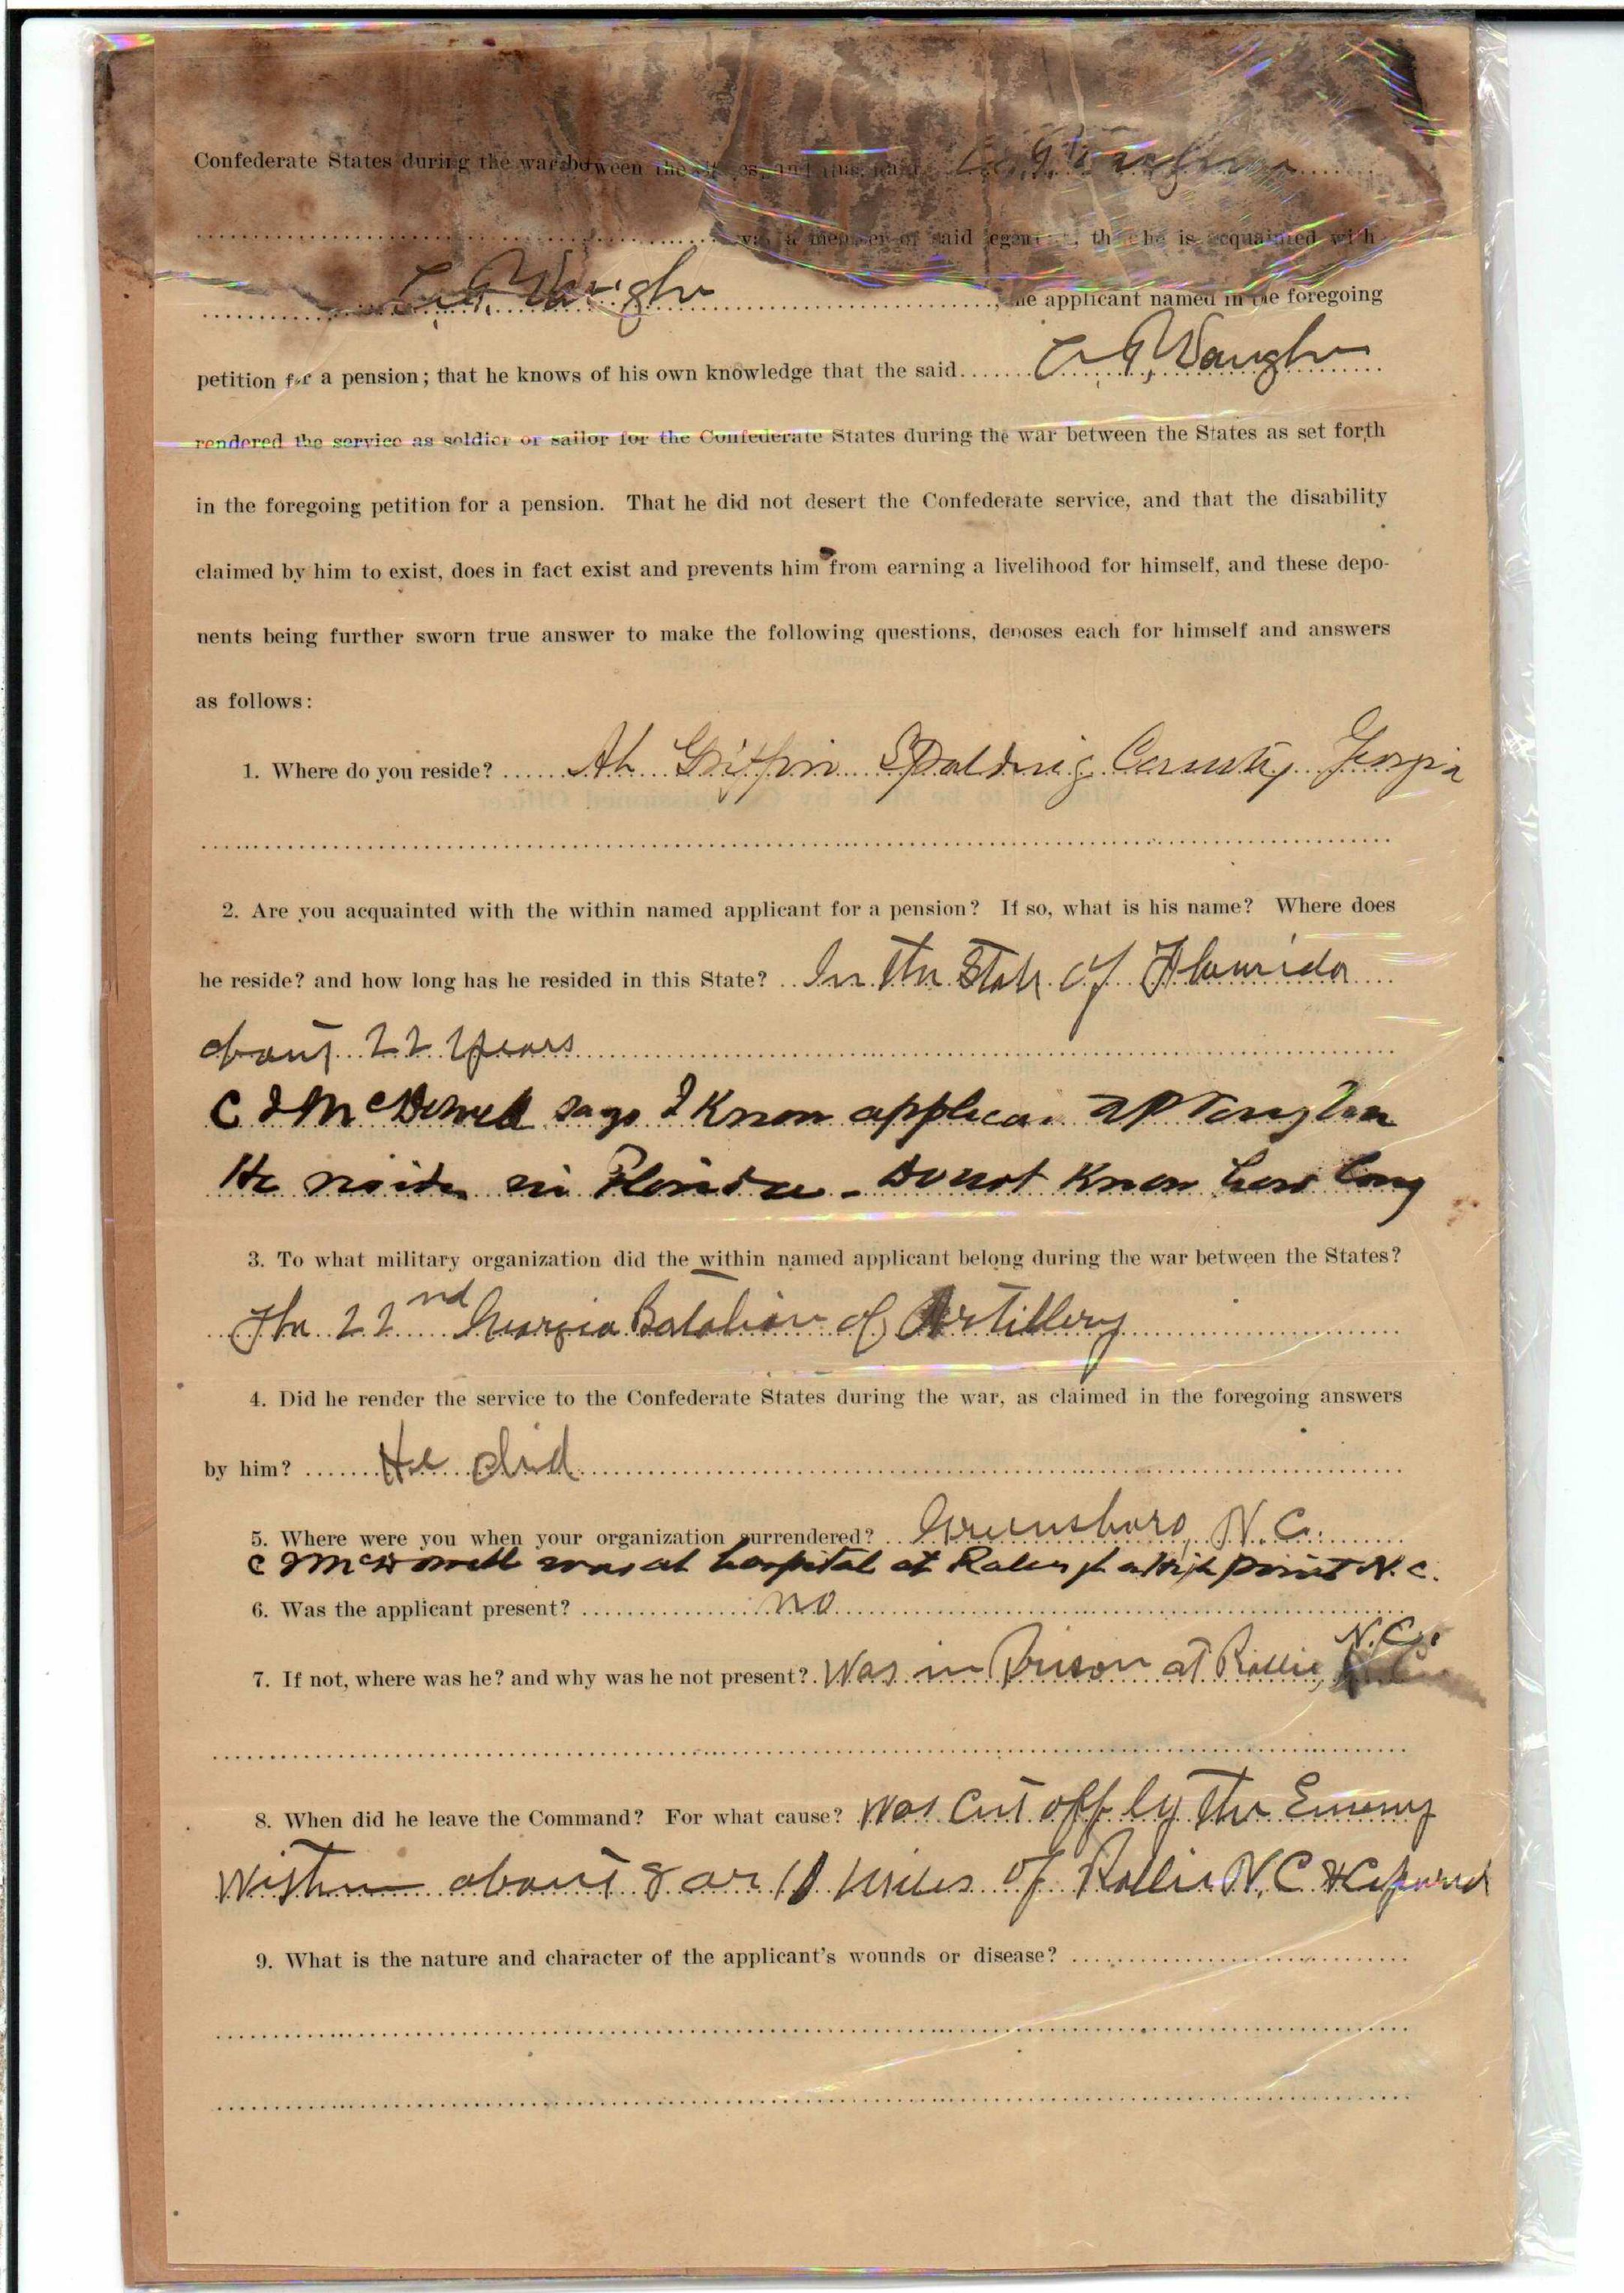 Confederate States during the war between the States, and that
was a member of said regiment, that he is acquainted with
the applicant named in the foregoing
petition for a pension; that he knows of his own knowledge that the said
rendered the service as soldier or sailor for the Confederate States during the war between the States as set forth
in the foregoing petition for a pension. That he did not desert the Confederate service, and that the disability
claimed by him to exist, does in fact exist and prevents him from earning a livelihood for himself, and these depo-
nents being further sworn true answer to make the following questions, deposes each for himself and answers
as follows:
1. Where do you reside? At Griffin Spalding County Georgia
2. Are you acquainted with the within named applicant for a pension? If so, what is his name? Where does
he reside? and how long has he resided in this State? In the State of Flourida
about 22 Years
says I Know
He resides in Florida - Do not Know how long
3. To what military organization did the within named applicant belong during the war between the States?
The 22nd Georgia Batalion of Artillery
4. Did he render the service to the Confederate States during the war, as claimed in the foregoing answers
by him? He did
5. Where were you when your organization surrendered? Greensboro, N. C.
was at hospital at Point N. C.
6. Was the applicant present? no
7. If not, where was he? and why was he not present? Was in Prison at Rollie, N. C.
8. When did he leave the Command? For what cause? Was Cut off by the Enemy
Within about 8 or 10 Miles of Rollie N. C.
9. What is the nature and character of the applicant's wounds or disease?